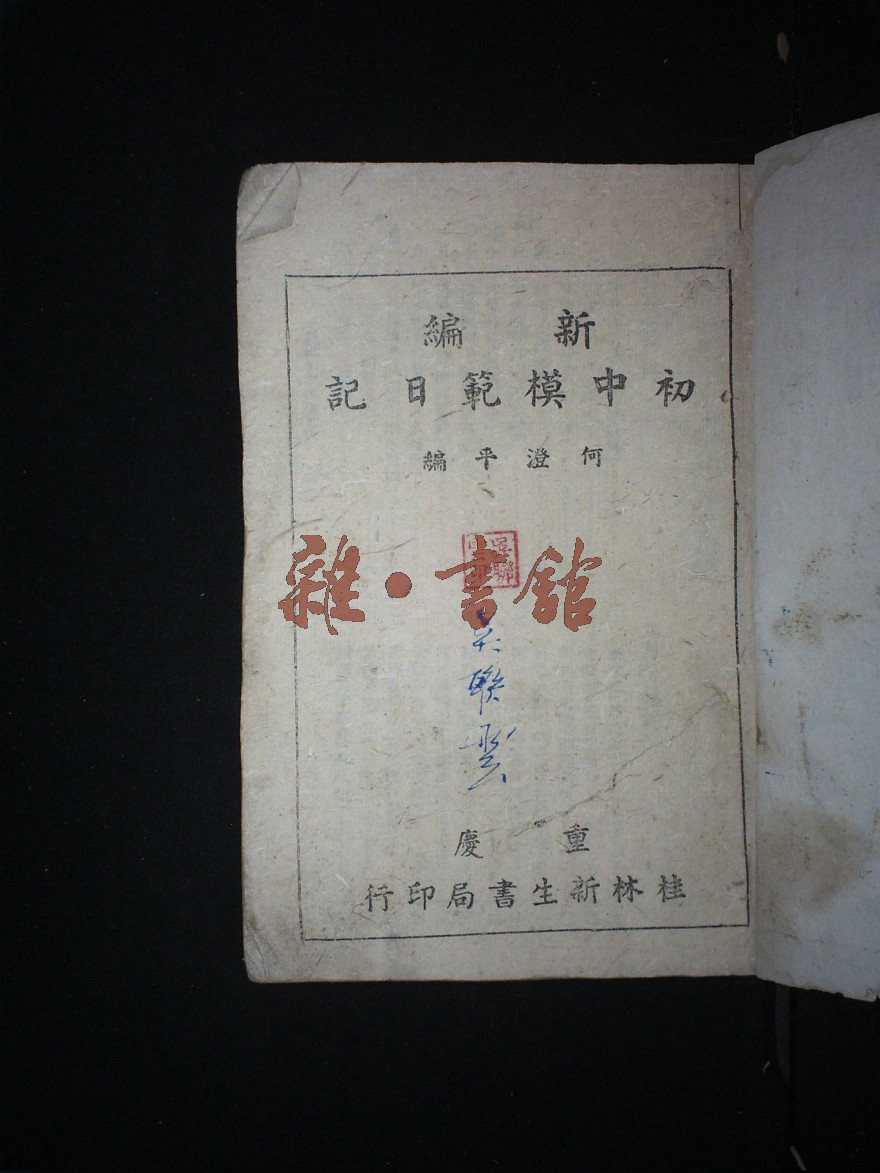 新編
初中模範日記
何澄平編
雜·書館
聯
重慶
桂林新生書局印行